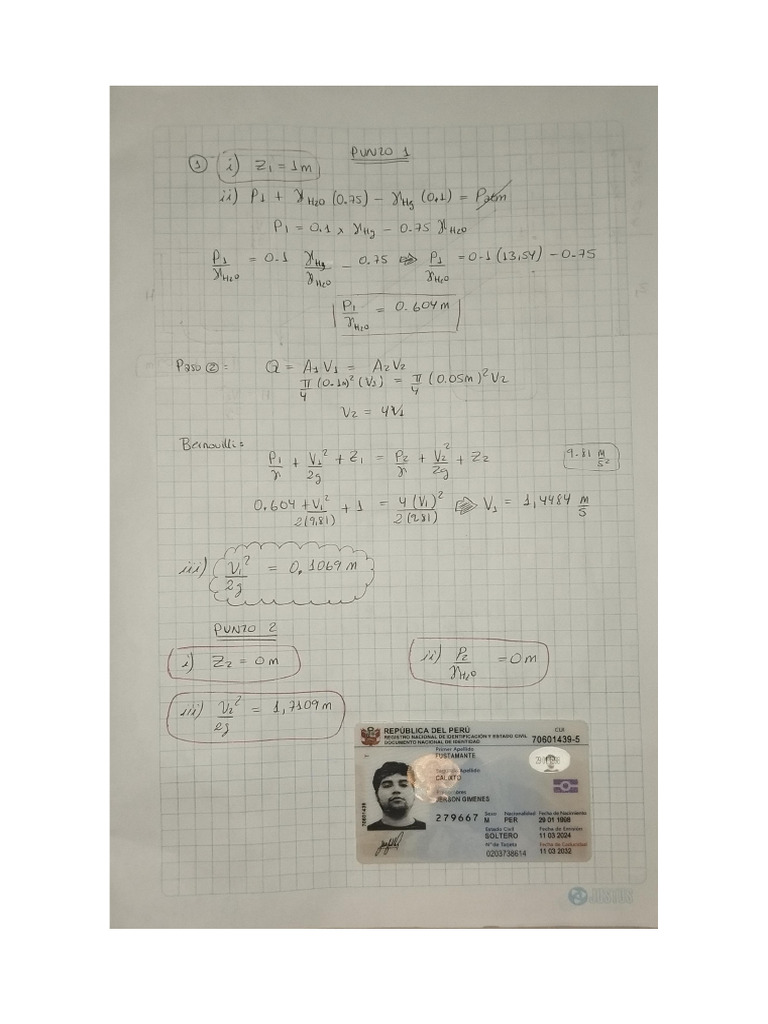 PUNTO 1
① i) Z1 = 1m
ii) P1 + γH2O (0.75) − γHg (0.1) = Patm
P1 = 0.1 x γHg − 0.75 γH2O
P1/γH2O = 0.1 γHg/γH2O − 0.75 ⇒ P1/γH2O = 0.1 (13,54) − 0.75
P1/γH2O = 0.604 m
Paso ②: Q = A1 V1 = A2 V2
π/4 (0.1m)² (V1) = π/4 (0.05m)² V2
V2 = 4V1
Bernouilli:
P1/γ + V1²/2g + Z1 = P2/γ + V2²/2g + Z2 9.81 m/s²
0.604 + V1²/2(9,81) + 1 = 4(V1)²/2(981) ⇒ V1 = 1,4484 m/s
iii) V1²/2g = 0,1069 m
PUNTO 2
i) Z2 = 0 m ii) P2/γH2O = 0 m
iii) V2²/2g = 1,7109 m
REPÚBLICA DEL PERÚ CUI
REGISTRO NACIONAL DE IDENTIFICACIÓN Y ESTADO CIVIL 70601439-5
DOCUMENTO NACIONAL DE IDENTIDAD
Primer Apellido
FUSTAMANTE
Segundo Apellido
CALIXTO
JERSON GIMENES
70601439
Sexo Nacionalidad Fecha de Nacimiento
279667 M PER 29 01 1998
Estado Civil Fecha de Emisión
SOLTERO 11 03 2024
Nº de Tarjeta Fecha de Caducidad
0203738614 11 03 2032
JUSTUS